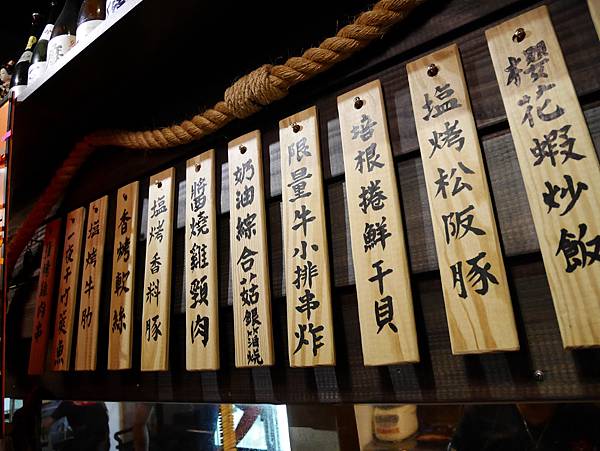 櫻花蝦炒飯
塩烤松阪豚
培根捲鮮干貝
限量牛小排串炸
奶油綜合菇銀箔燒
醬燒雞頸肉
塩烤香料豚
香烤軟絲
塩烤牛肋
一夜干竹筴魚
雞肉串